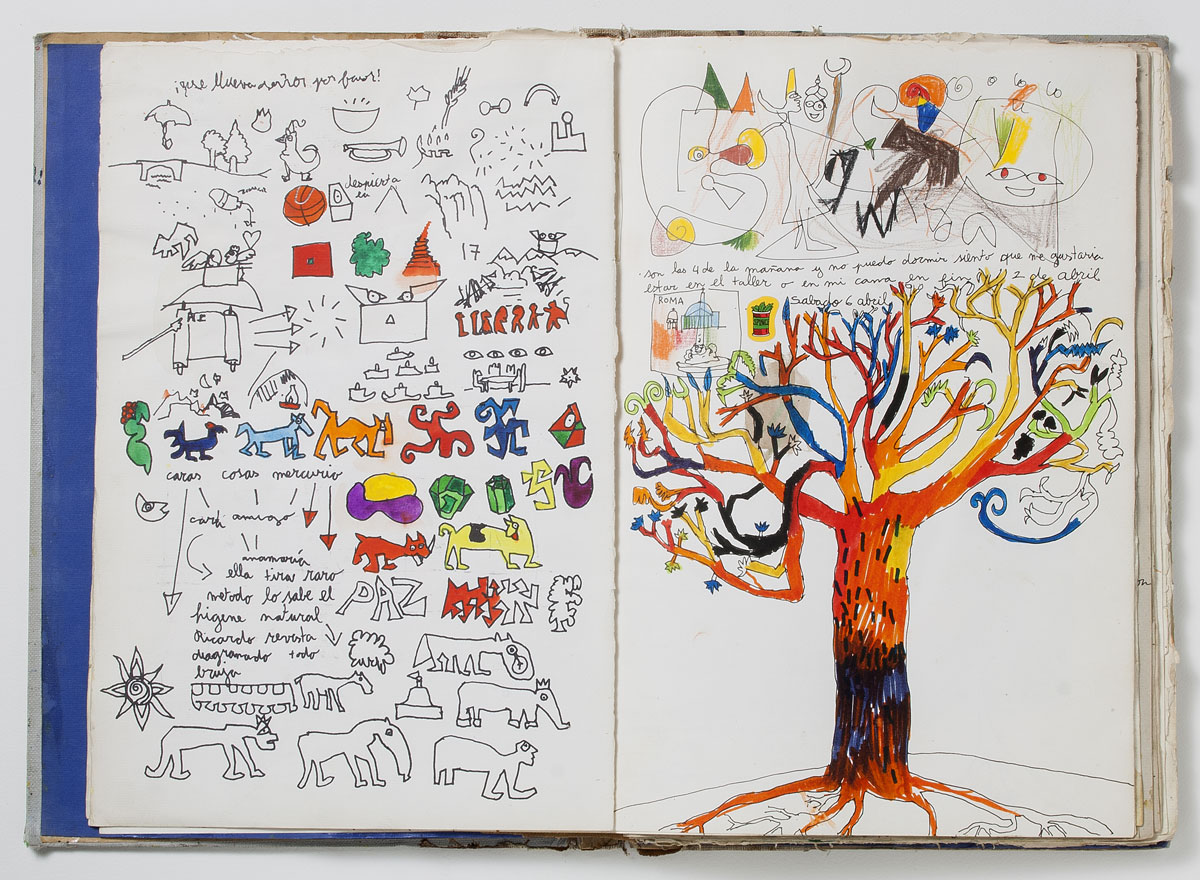 ¡que llueva señor por favor!
despierta
17
caras cosas mercurio
cara amigo
anamaría
ella tira raro
metodo lo sabe el
higene natural
Ricardo revista
diagramado todo
bruja
PAZ
son las 4 de la mañana y no puedo dormir siento que me gustaria
estar en el taller o en mi cama en fin 2 de abril
ROMA
sabado 6 abril